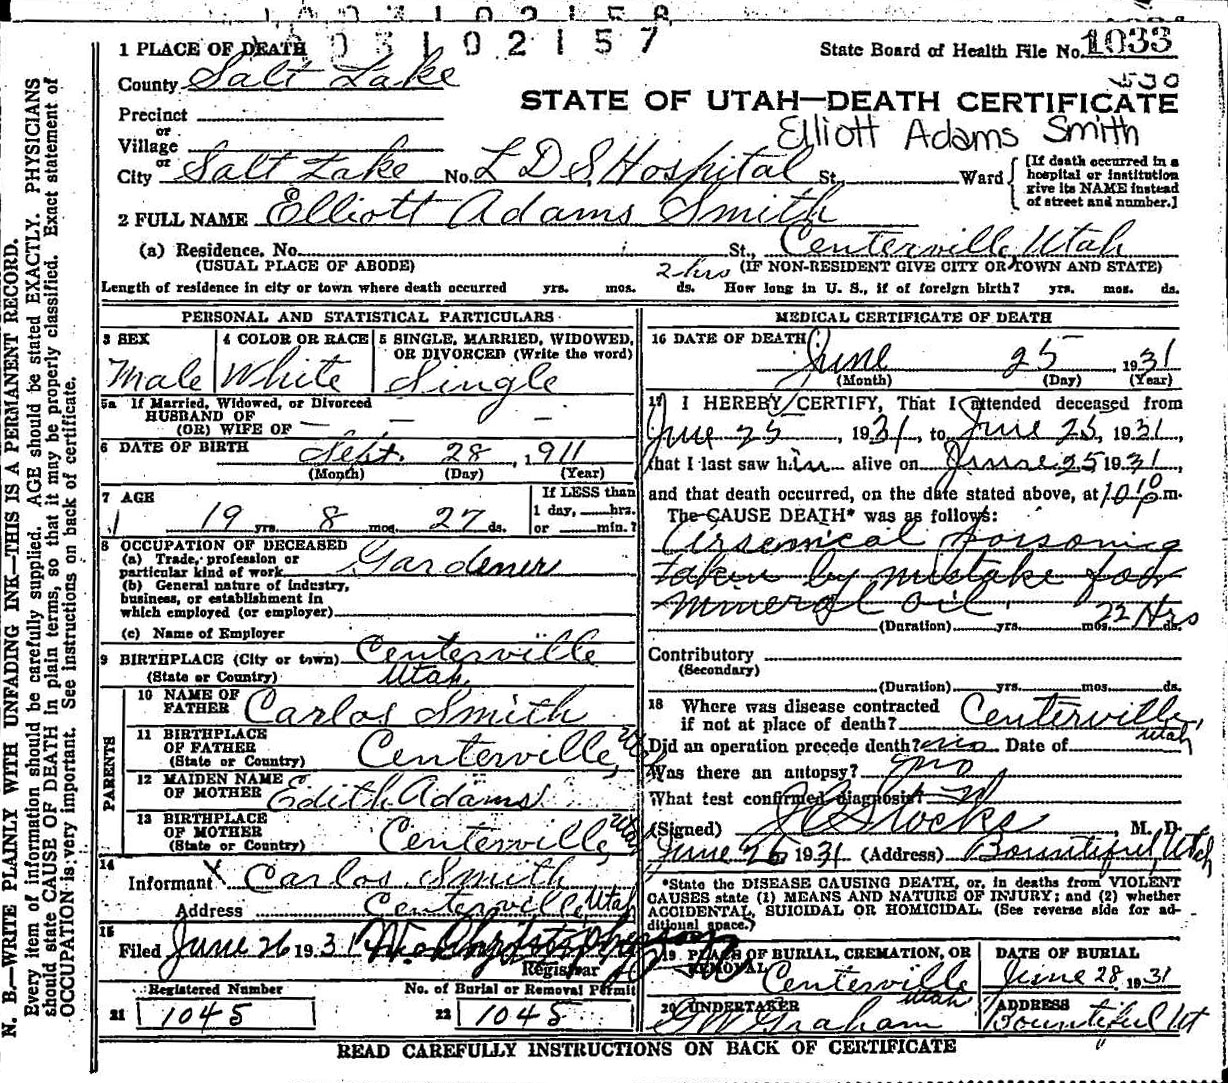 A03102158
A03102157
1 PLACE OF DEATH
State Board of Health File No. 1033
County Salt Lake
530
STATE OF UTAH—DEATH CERTIFICATE
Precinct
Elliott Adams Smith
or
Village
or
City Salt Lake No. L D S Hospital St., Ward
[If death occurred in a
hospital or institution
give its NAME instead
of street and number.]
2 FULL NAME Elliott Adams Smith
(a) Residence, No. St., Centerville, Utah
(USUAL PLACE OF ABODE)
(IF NON-RESIDENT GIVE CITY OR TOWN AND STATE)
2 hrs
Length of residence in city or town where death occurred yrs. mos. ds. How long in U. S., if of foreign birth? yrs. mos. ds.
PERSONAL AND STATISTICAL PARTICULARS
3 SEX
Male
4 COLOR OR RACE
White
5 SINGLE, MARRIED, WIDOWED,
OR DIVORCED (Write the word)
Single
5a If Married, Widowed, or Divorced
HUSBAND OF
(OR) WIFE OF — — —
6 DATE OF BIRTH Sept. 28, 1911
(Month) (Day) (Year)
7 AGE
19 yrs. 8 mos. 27 ds.
If LESS than
1 day, hrs.
or min.?
8 OCCUPATION OF DECEASED
(a) Trade, profession or
particular kind of work Gardener
(b) General nature of Industry,
business, or establishment in
which employed (or employer)
(c) Name of Employer
9 BIRTHPLACE (City or town) Centerville
(State or Country) Utah
PARENTS
10 NAME OF
FATHER Carlos Smith
11 BIRTHPLACE
OF FATHER
(State or Country) Centerville, Utah
12 MAIDEN NAME
OF MOTHER Edith Adams
13 BIRTHPLACE
OF MOTHER
(State or Country) Centerville, Utah
14
Informant X Carlos Smith
Address Centerville, Utah
15
Filed June 26 1931
Registrar
Registered Number
21 1045
No. of Burial or Removal Permit
22 1045
MEDICAL CERTIFICATE OF DEATH
16 DATE OF DEATH
June 25, 1931
(Month) (Day) (Year)
17 I HEREBY CERTIFY, That I attended deceased from
June 25, 1931, to June 25, 1931,
that I last saw him alive on June 25 1931,
and that death occurred, on the date stated above, at 10 10 p m.
The CAUSE DEATH* was as follows:
Arsenical poisoning
taken by mistake for
mineral oil.
(Duration) yrs. mos. 22 Hrs ds.
Contributory
(Secondary)
(Duration) yrs. mos. ds.
18 Where was disease contracted
if not at place of death? Centerville, Utah
Did an operation precede death? no Date of
Was there an autopsy? no
What test confirmed diagnosis?
(Signed) Stocks, M. D.
June 26 1931 (Address) Bountiful, Utah
*State the DISEASE CAUSING DEATH, or, in deaths from VIOLENT
CAUSES state (1) MEANS AND NATURE OF INJURY; and (2) whether
ACCIDENTAL, SUICIDAL OR HOMICIDAL. (See reverse side for ad-
ditional space.)
19 PLACE OF BURIAL, CREMATION, OR
REMOVAL Centerville
Utah
DATE OF BURIAL
June 28, 1931
20 UNDERTAKER
G W Graham
ADDRESS
Bountiful Ut
READ CAREFULLY INSTRUCTIONS ON BACK OF CERTIFICATE
N. B.—WRITE PLAINLY WITH UNFADING INK—THIS IS A PERMANENT RECORD.
Every item of information should be carefully supplied. AGE should be stated EXACTLY. PHYSICIANS
should state CAUSE OF DEATH in plain terms, so that it may be properly classified. Exact statement of
OCCUPATION is very important. See instructions on back of certificate.